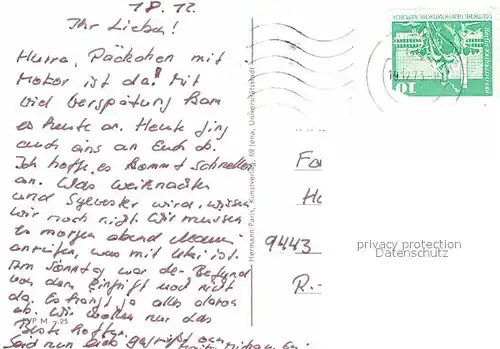 18.12.
Ihr Lieben!
Hurra, Päckchen mit
Motor ist da! Mit
viel Verspätung kam
es heute an. Heute ging
auch eins an Euch ab.
Ich hoffe, es kommt schneller
an. Was Weihnachten
und Sylvester wird, wissen
wir noch nicht. Wir müssen
morgen abend
anrufen, was mit ist.
Am Sonntag war der Befund
von dem Eingriff noch nicht
da. Es hängt ja alles davon
ab. Wir wollen nur das
Beste hoffen.
Seid nun alle gegrüßt von
VP M 7 25
Hermann Paris, Kunstverlag, 69 Jena, Universitätsstadt
DEUTSCHE DEMOKRATISCHE REPUBLIK
10
9443
R.-
privacy protection
Datenschutz